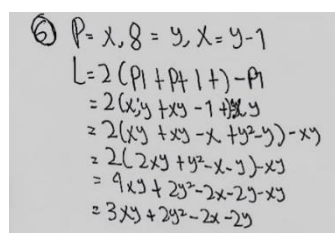 ⑥ P = x, 8 = y, X = y-1
L = 2(P1 + Pt 1 t) - P1
= 2(x;y + xy - 1 + y
= 2(xy + xy - x + y² - y) - xy
= 2(2xy + y² - x - y) - xy
= 4xy + 2y² - 2x - 2y - xy
= 3xy + 2y² - 2x - 2y